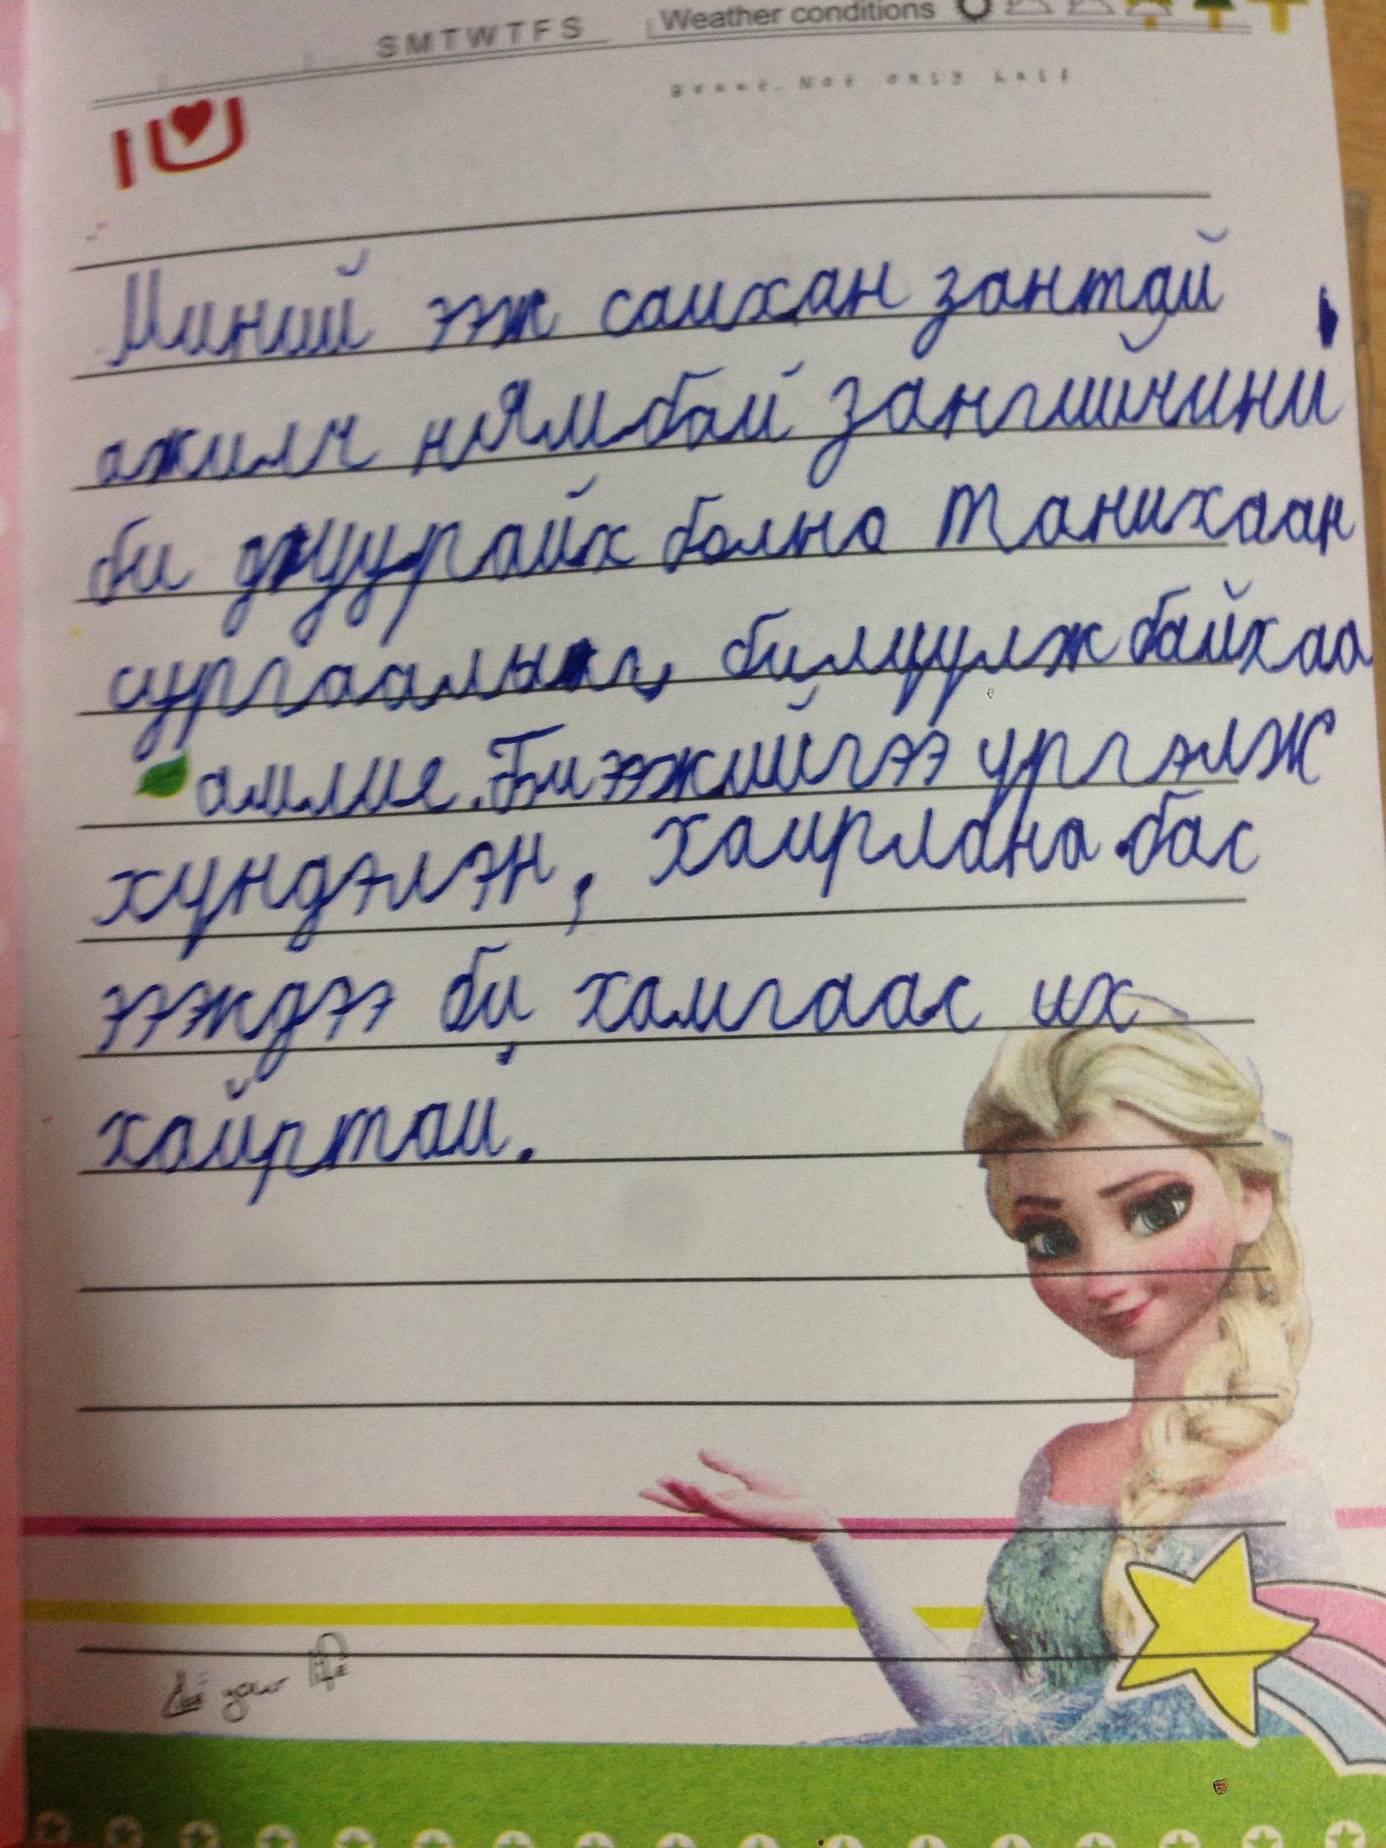 S M T W T F S Weather conditions
I U
Миний ээж саихан зантай
ажилч нямбай зангийчини
би дууурайх болно Танихаан
сургаалыг, билүүлж байхаа
амлие. Би ээжийгээ үргэлж
хүндэлэн, хаирлана. бас
ээждээ би хамгаас их
хайртаи.
your life